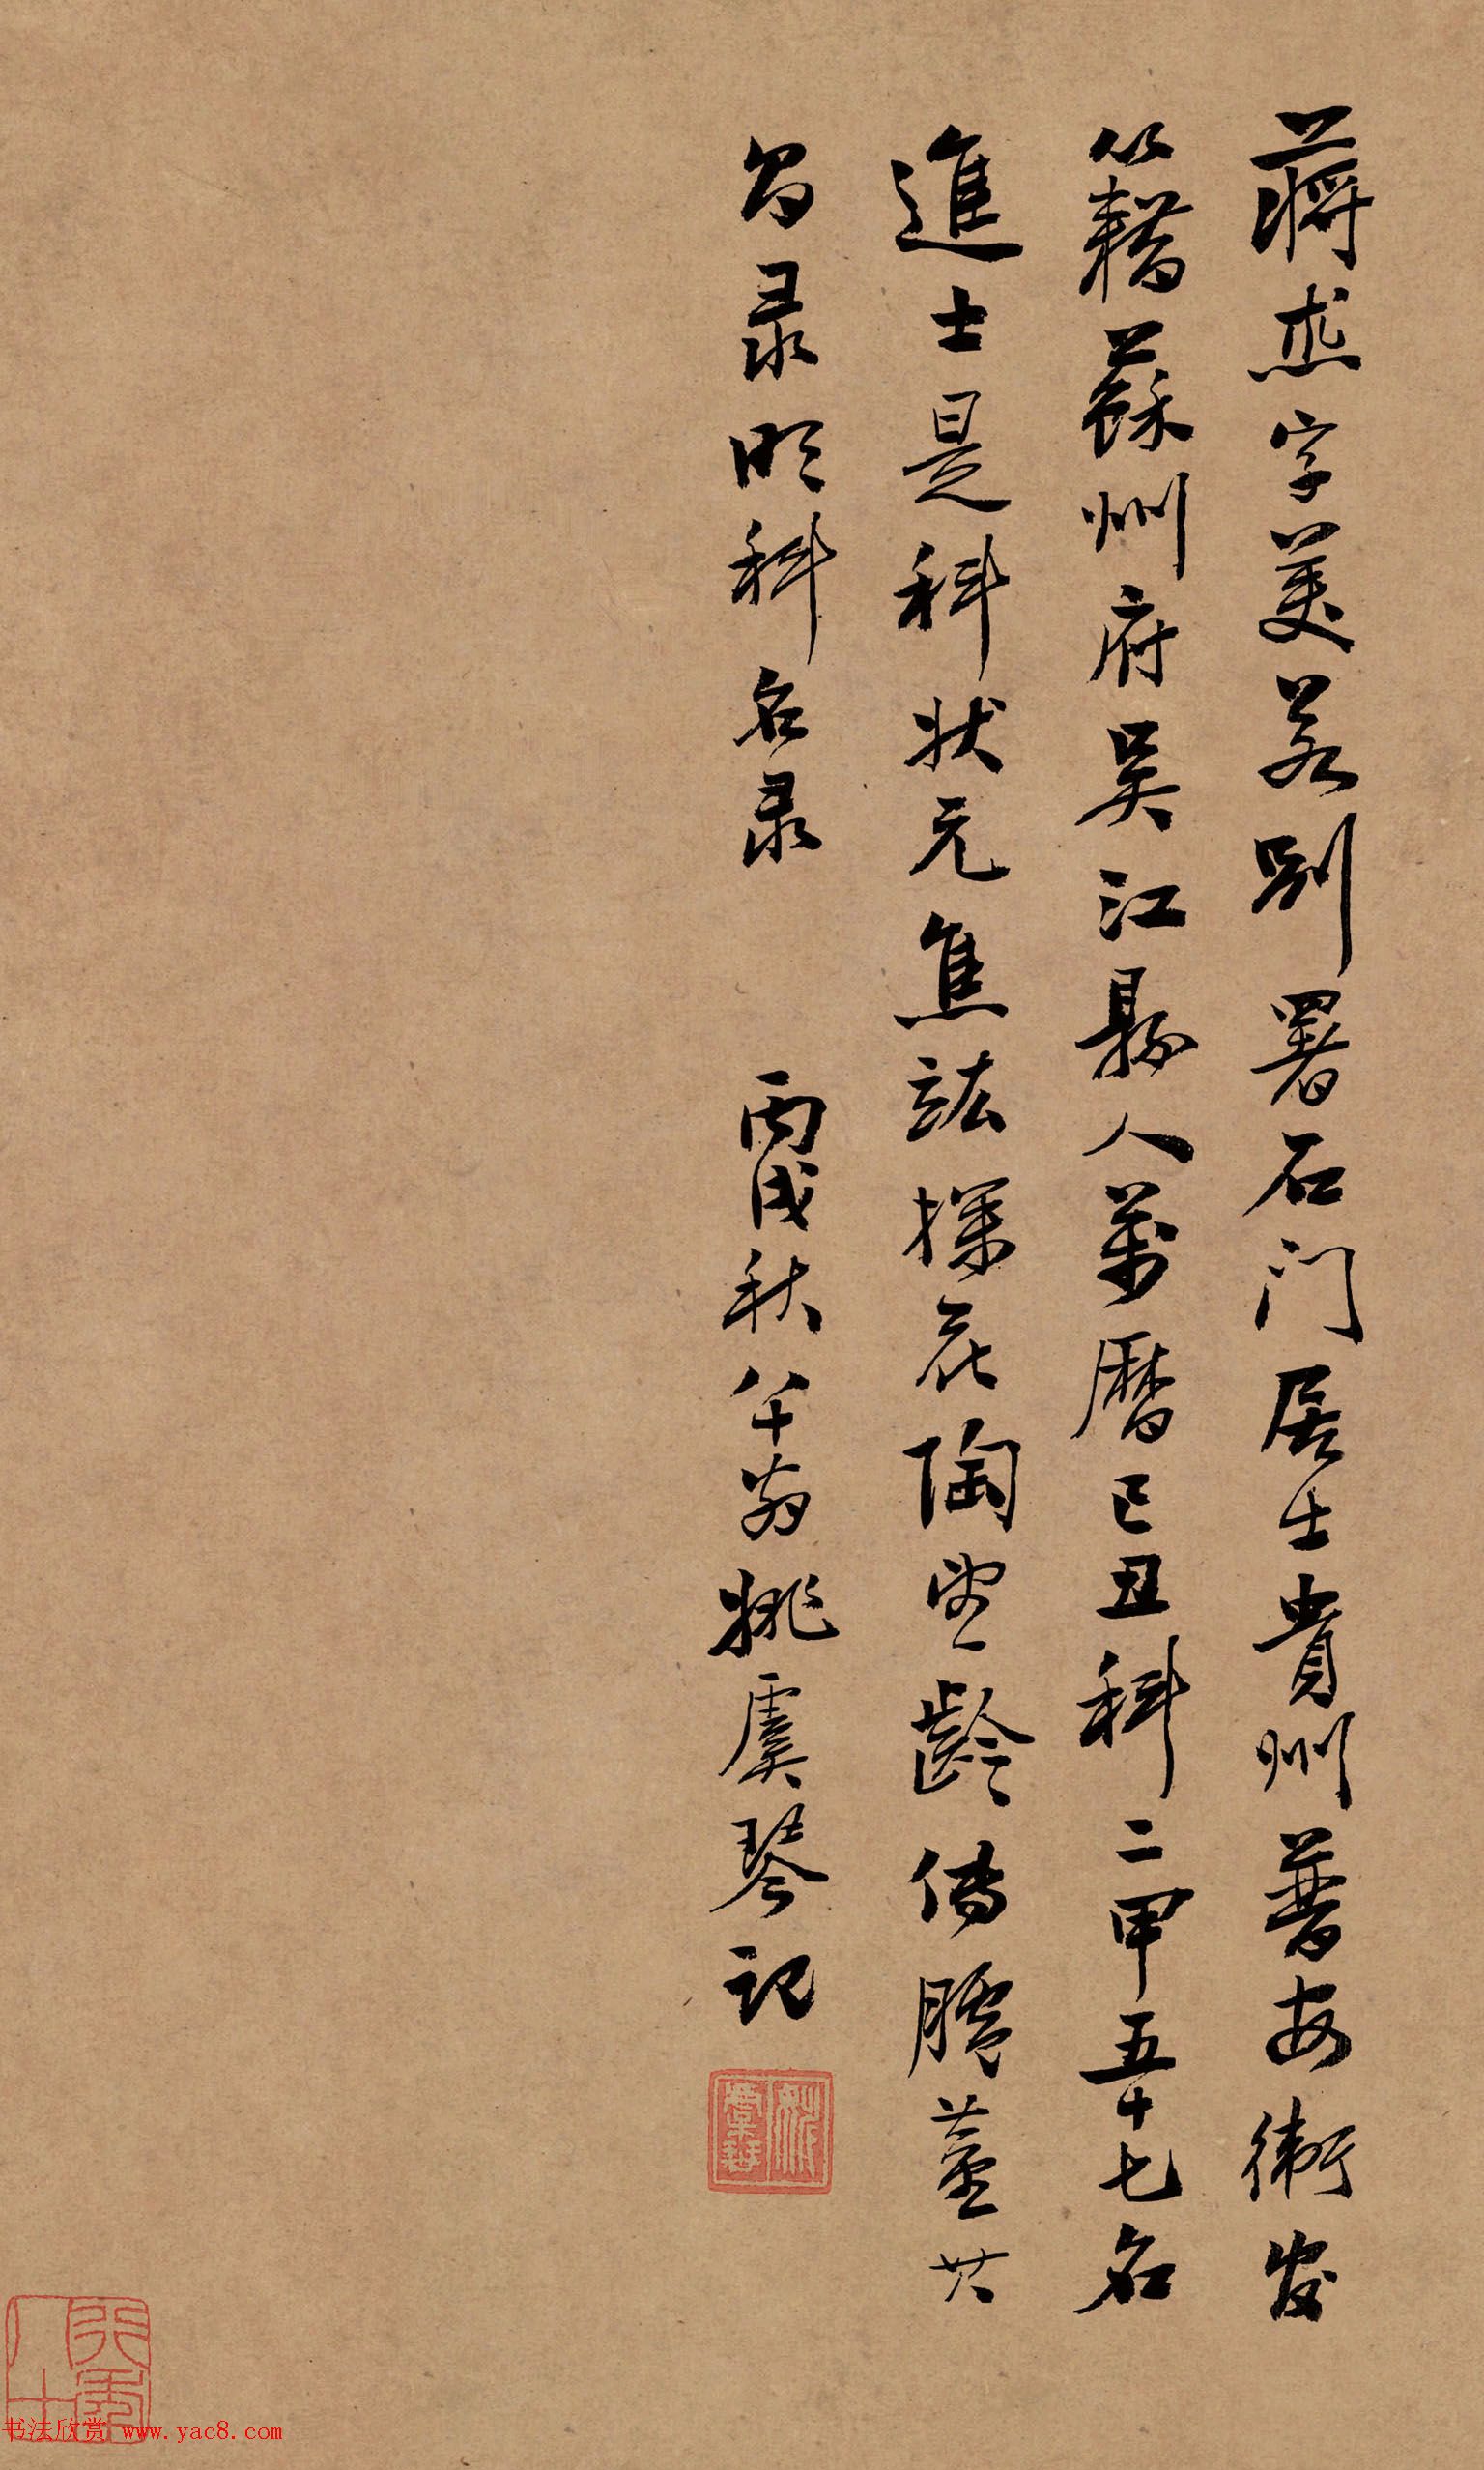 蒋杰字美若别署石门居士貴州普安衛官
籍蘇州府吴江縣人萬曆己丑科二甲五十七名
進士是科状元焦竑探花陶望齡傳臚董其
昌录明科名录 丙戌秋八十翁姚虞琴記
书法欣赏 www.yac8.com